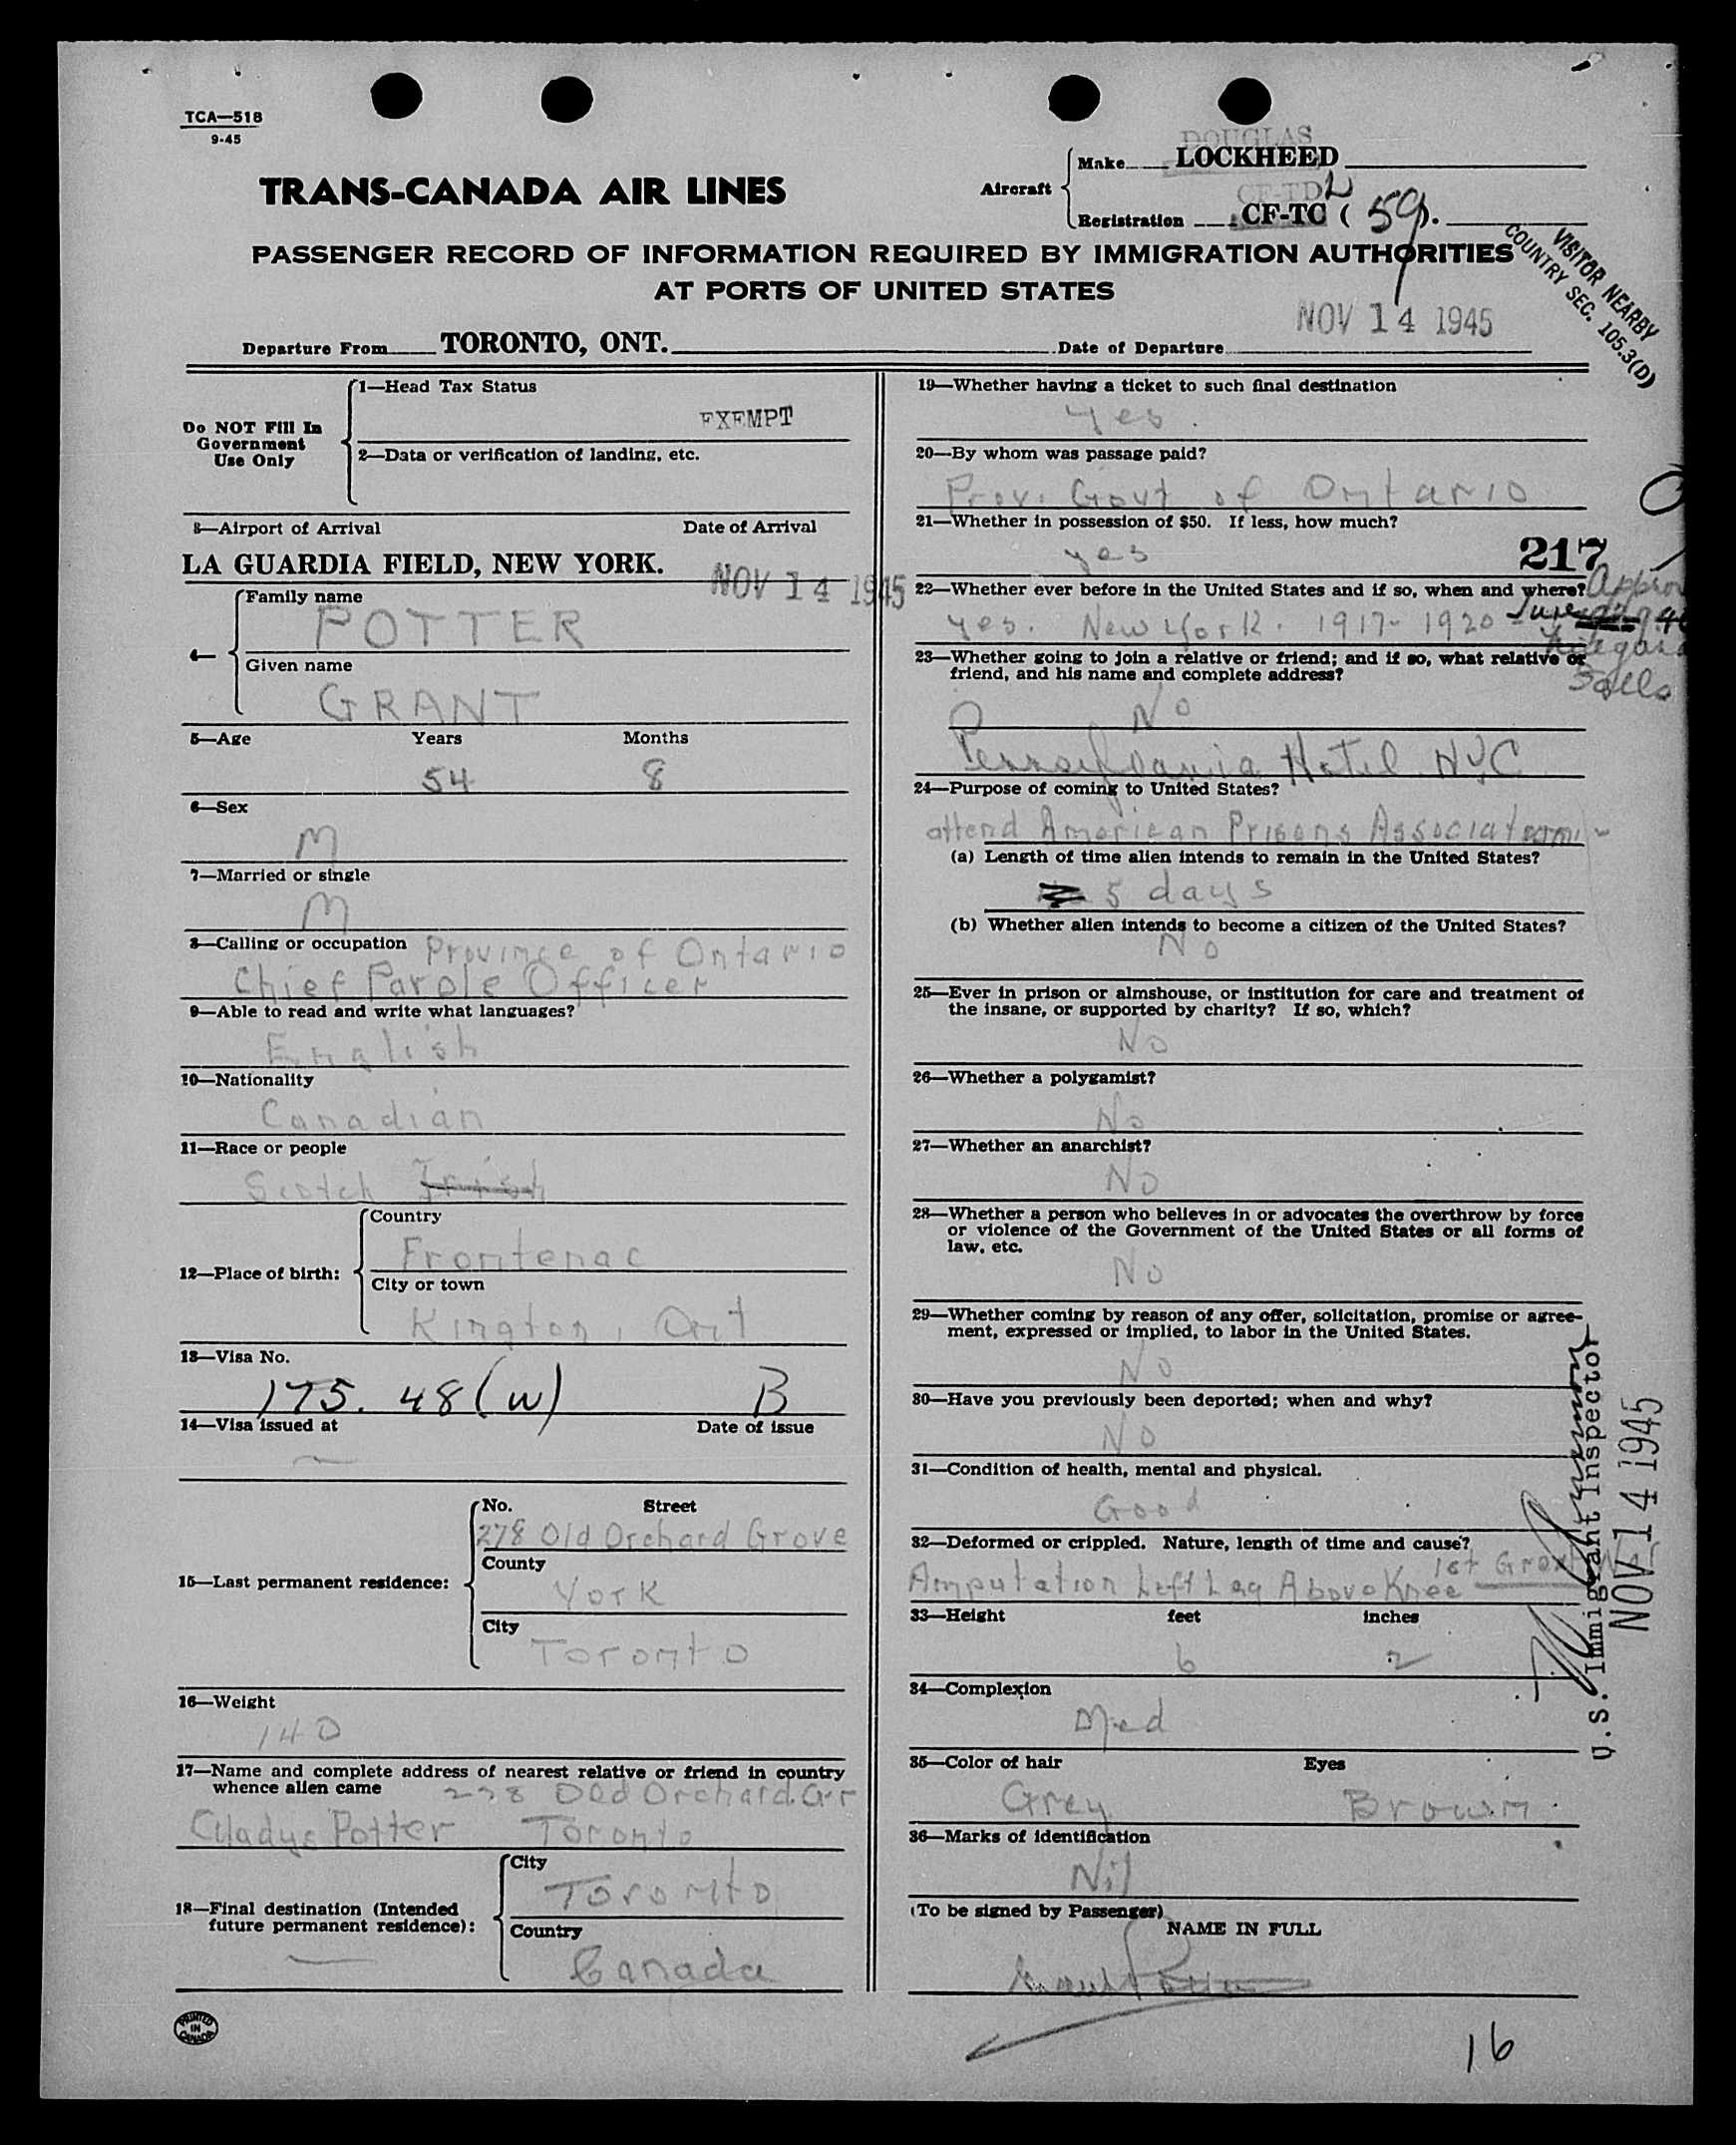 TCA—518
9-45
DOUGLAS
Make LOCKHEED
TRANS-CANADA AIR LINES
Aircraft
CF-TD L
Registration CF-TC ( 59 ).
PASSENGER RECORD OF INFORMATION REQUIRED BY IMMIGRATION AUTHORITIES
AT PORTS OF UNITED STATES
VISITOR NEARBY
COUNTRY SEC. 105.3(D)
NOV 14 1945
Departure From TORONTO, ONT. Date of Departure
Do NOT Fill In
Government
Use Only
1—Head Tax Status
EXEMPT
2—Data or verification of landing, etc.
3—Airport of Arrival Date of Arrival
LA GUARDIA FIELD, NEW YORK. NOV 14 1945
4—
Family name
POTTER
Given name
GRANT
5—Age Years Months
54 8
6—Sex
M
7—Married or single
M
8—Calling or occupation Province of Ontario
Chief Parole Officer
9—Able to read and write what languages?
English
10—Nationality
Canadian
11—Race or people
Scotch Irish
12—Place of birth:
Country
Frontenac
City or town
Kington, Ont
13—Visa No.
175. 48(W) B
14—Visa issued at Date of issue
15—Last permanent residence:
No. Street
278 Old Orchard Grove
County
York
City
Toronto
16—Weight
140
17—Name and complete address of nearest relative or friend in country
whence alien came 278 Old Orchard Gr
Gladys Potter Toronto
18—Final destination (Intended
future permanent residence):
City
Toronto
Country
Canada
PRINTED
IN
CANADA
19—Whether having a ticket to such final destination
Yes
20—By whom was passage paid?
Prov. Govt of Ontario
21—Whether in possession of $50. If less, how much?
yes
217
22—Whether ever before in the United States and if so, when and where?
Yes. New York. 1917- 1920
23—Whether going to join a relative or friend; and if so, what relative or
friend, and his name and complete address?
Falls
No
Pennsylvania Hotel NYC
24—Purpose of coming to United States?
attend American Prisons Association
(a) Length of time alien intends to remain in the United States?
5 days
(b) Whether alien intends to become a citizen of the United States?
No
25—Ever in prison or almshouse, or institution for care and treatment of
the insane, or supported by charity? If so, which?
No
26—Whether a polygamist?
No
27—Whether an anarchist?
No
28—Whether a person who believes in or advocates the overthrow by force
or violence of the Government of the United States or all forms of
law, etc.
No
29—Whether coming by reason of any offer, solicitation, promise or agree-
ment, expressed or implied, to labor in the United States.
No
30—Have you previously been deported; when and why?
No
31—Condition of health, mental and physical.
Good
32—Deformed or crippled. Nature, length of time and cause?
1st Great War
Amputation Left Leg Above Knee
33—Height feet inches
6 2
34—Complexion
Med
35—Color of hair Eyes
Grey Brown
36—Marks of identification
Nil
(To be signed by Passenger)
NAME IN FULL
Grant Potter
U.S. Immigrant Inspector
NOV 14 1945
16